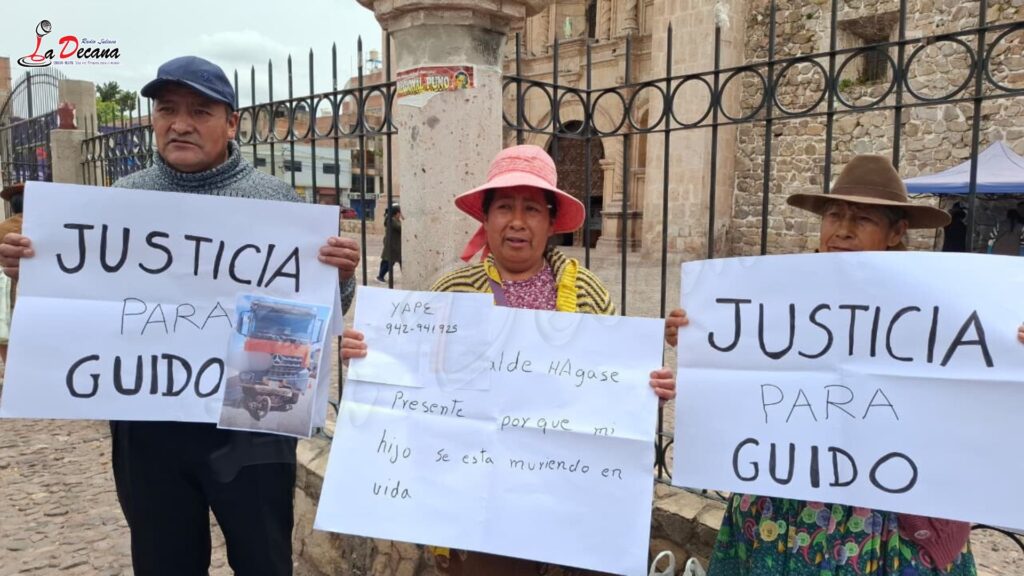 Radio Juliaca
La Decana
JUSTICIA
PARA
GUIDO
REGIONAL PUNO
YAPE
942-941925
alde HAgase
Presente porque mi
hijo se esta muriendo en
vida
JUSTICIA
PARA
GUIDO